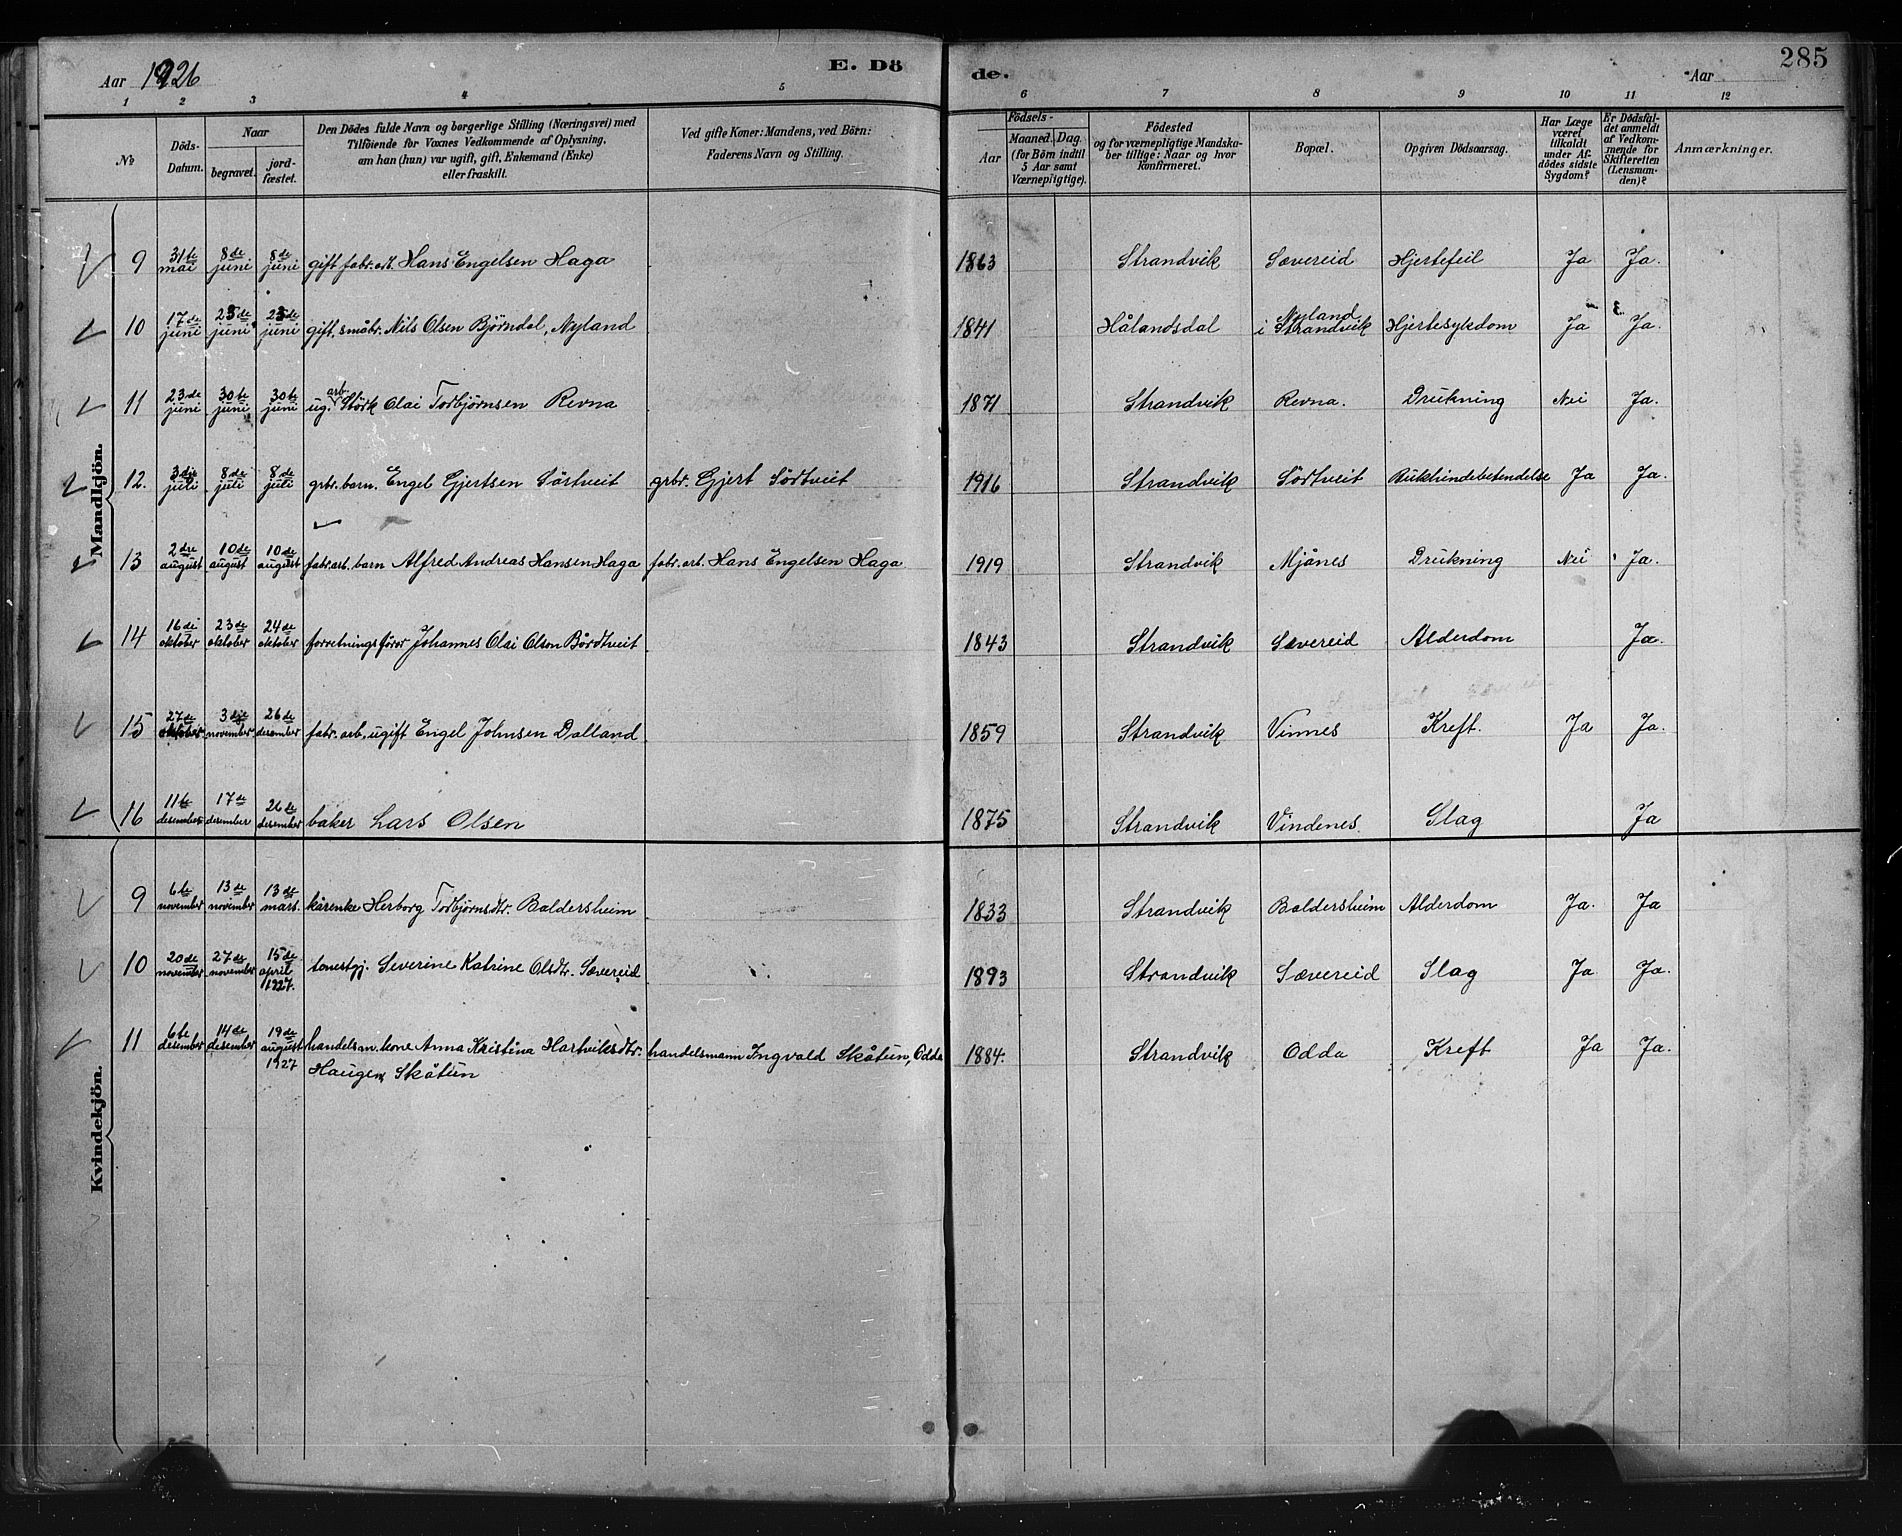 285
Aar 1926
E. Dö
de.
Aar
1 2 3 4 5 6 7 8 9 10 11 12
No
Döds-Datum.
Naar
begravet.
jord-fæstet.
Den Dödes fulde Navn og borgerlige Stilling (Næringsvei) med
Tilföiende for Voxnes Vedkommende af Oplysning,
om han (hun) var ugift, gift, Enkemand (Enke)
eller fraskilt.
Ved gifte Koner: Mandens, ved Börn:
Faderens Navn og Stilling.
Födsels-
Aar
Maaned. Dag.
(for Börn indtil
5 Aar samt
Værnepligtige).
Födested
og for værnepligtige Mandska-
ber tillige: Naar og hvor
konfirmeret.
Bopæl.
Opgiven Dödsaarsag.
Har Læge
været
tilkaldt
under Af-
dödes sidste
Sygdom?
Er Dödsfal-
det anmeldt
af Vedkom-
mende for
Skifteretten
(Lensman-
den)?
Anmærkninger.
Mandkjön.
9 31te mai 8de juni 8de juni gift fabr.arb. Hans Engelsen Haga 1863 Strandvik Sævereid Hjertefeil Ja Ja.
10 17de juni 25de juni 25de juni gift, småbr. Nils Olsen Björndal, Nyland 1841 Hålandsdal Nyland i Strandvik Hjertesykdom Ja Ja.
11 23de juni 30te juni 30te juni ug. arb. Störk Olai Torbjørnsen Revna 1871 Strandvik Revna. Drukning Nei Ja.
12. 3dje juli 8de juli 8de juli grbr. barn. Engel Gjertsen Sörtveit grbr. Gjert Sörtveit 1916 Strandvik Sörtveit Bukhindebetendelse Ja Ja.
13 2dre august 10de august 10de august fabr.arb. barn Alfred Andreas Hansen Haga fabr.arb. Hans Engelsen Haga 1919 Strandvik Mjånes Drukning Nei Ja.
14 16de oktober 23de oktober 24de oktober forretningsförer Johannes Olai Olson Bårdtveit 1843 Strandvik Sævereid Alderdom Ja.
15 27de oktober 3dje november 26de desember fabr. arb. ugift Engel Johnsen Dalland 1859 Strandvik Vinnes Kreft. Ja Ja.
16 11te desember 17de desember 26de desember baker Lars Olsen 1875 Strandvik Vindenes. Slag Ja
Kvindekjön.
9 6te november 13de november 13de mars. kårenke Herborg Torbjørnsdtr. Baldersheim 1833 Strandvik Baldersheim Alderdom Ja. Ja
10 20de november 27de november 15de april 1927. Severine Katrine Olsdtr. Sævereid 1893 Strandvik Sævereid Slag Ja Ja.
11 6te desember 14de desember 19de august 1927 handelsm. kone Anna Kristina Hartviksdtr. handelsmann Ingvald Skåtun, Odda 1884. Strandvik Odda Kreft Ja Ja.
Haugen, Skåtun